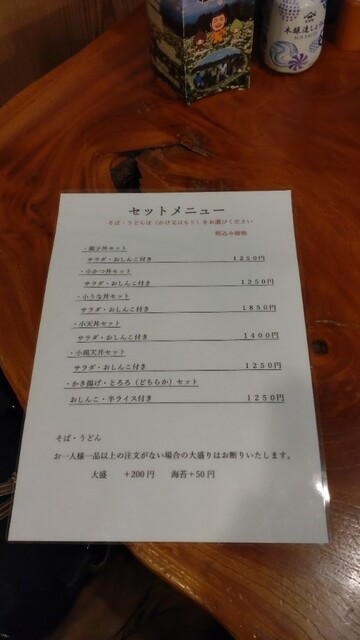 本醸造しょうゆ
セットメニュー
そば・うどんは（かけ又はもり）をお選びください
税込み価格
・親子丼セット
サラダ・おしんこ付き 1250円
・小かつ丼セット
サラダ・おしんこ付き 1250円
・小うな丼セット
サラダ・おしんこ付き 1850円
・小天丼セット
サラダ・おしんこ付き 1400円
・小掻天丼セット
サラダ・おしんこ付き 1250円
・かき揚げ・とろろ（どちらか）セット
おしんこ・半ライス付き 1250円
そば・うどん
お一人様一品以上の注文がない場合の大盛りはお断りいたします。
大盛 ＋200円 海苔＋50円